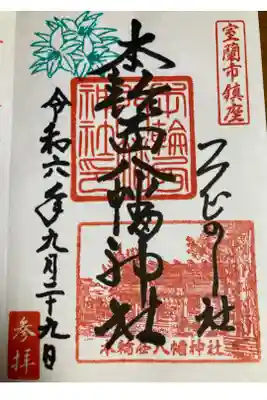 室蘭市鎮座
つつじの杜
本輪西八幡神社
令和六年九月二十九日
参拝
本輪西八幡神社